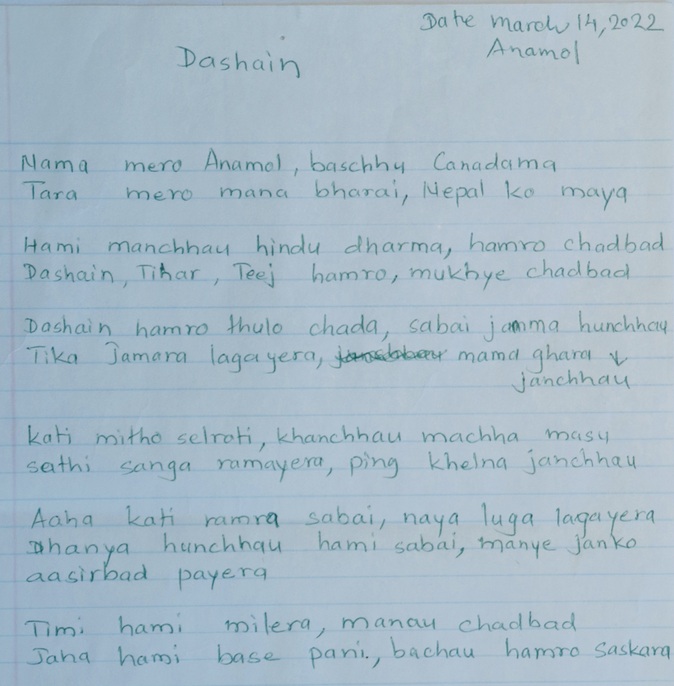 Date march 14, 2022
Anamol
Dashain
Nama mero Anamol, baschhu Canadama
Tara mero mana bharai, Nepal ko maya
Hami manchhau hindu dharma, hamro chadbad
Dashain, Tihar, Teej hamro, mukhye chadbad
Dashain hamro thulo chada, sabai jamma hunchhau
Tika Jamara lagayera, mama ghara
janchhau
Kati mitho selroti, khanchhau machha masu
sathi sanga ramayera, ping khelna janchhau
Aaha kati ramra sabai, naya luga lagayera
Dhanya hunchhau hami sabai, manye janko
aasirbad payera
Timi hami milera, manau chadbad
Jaha hami base pani, bachau hamro saskara